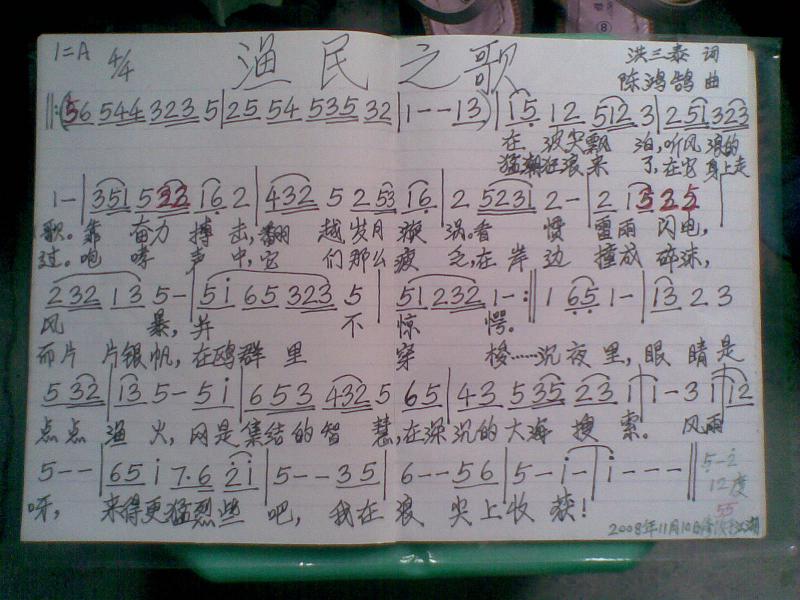 1=A 4/4 渔民之歌 洪三泰 词
陈鸿鹄 曲
‖:(56 544 323 5|25 54 535 32|1--13)|15 12 512 3|2 51 323
在 波尖飘 泊,听风浪的
猛潮狂浪来 了,在它身上走
1-|351 533 16 2|432 5 2 53 16|2 5231 2-|2 1 535
歌。靠 奋力 搏 击,翻 越岁月 漩 涡。看 惯 雷雨 闪电,
过。咆 哮 声 中,它 们那么疲 乏,在岸 边 撞成 碎沫,
2 32 1 3 5-|5i 65 323 5|51 232 1-:‖1 65 1-|13 2 3
风 暴,并 不 惊 愕。
而片 片银帆,在鸥群 里 穿 梭……沉夜里,眼 睛是
5 32|13 5-5i|6 53 432 5 65|43 535 23 1|1-3 1 12
点点 渔 火,网是集结的智 慧,在深沉的大海 搜 索。 风雨
5--|65 i 7·6 2i|5--35|6--56|5-i-|i---‖5-2
呀, 来得更猛烈些 吧, 我在 浪 尖上收 获! 12度
55
2008年11月10日